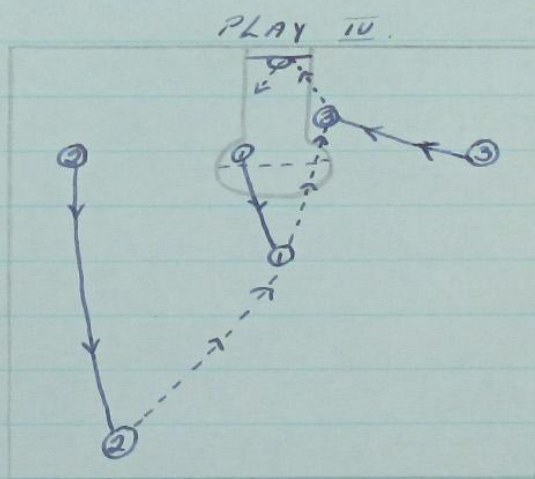 PLAY IV.
2 1 3
3
1
2